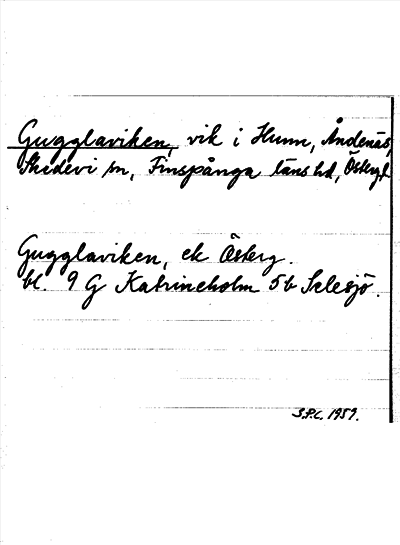 Gugglaviken, vik i Hunn, Åndenäs,
Skedevi sn, Finspånga läns hd, Östergl
Gugglaviken, ek Österg.
bl. 9 G Katrineholm 5b Selesjö.
S.P.C. 1959.